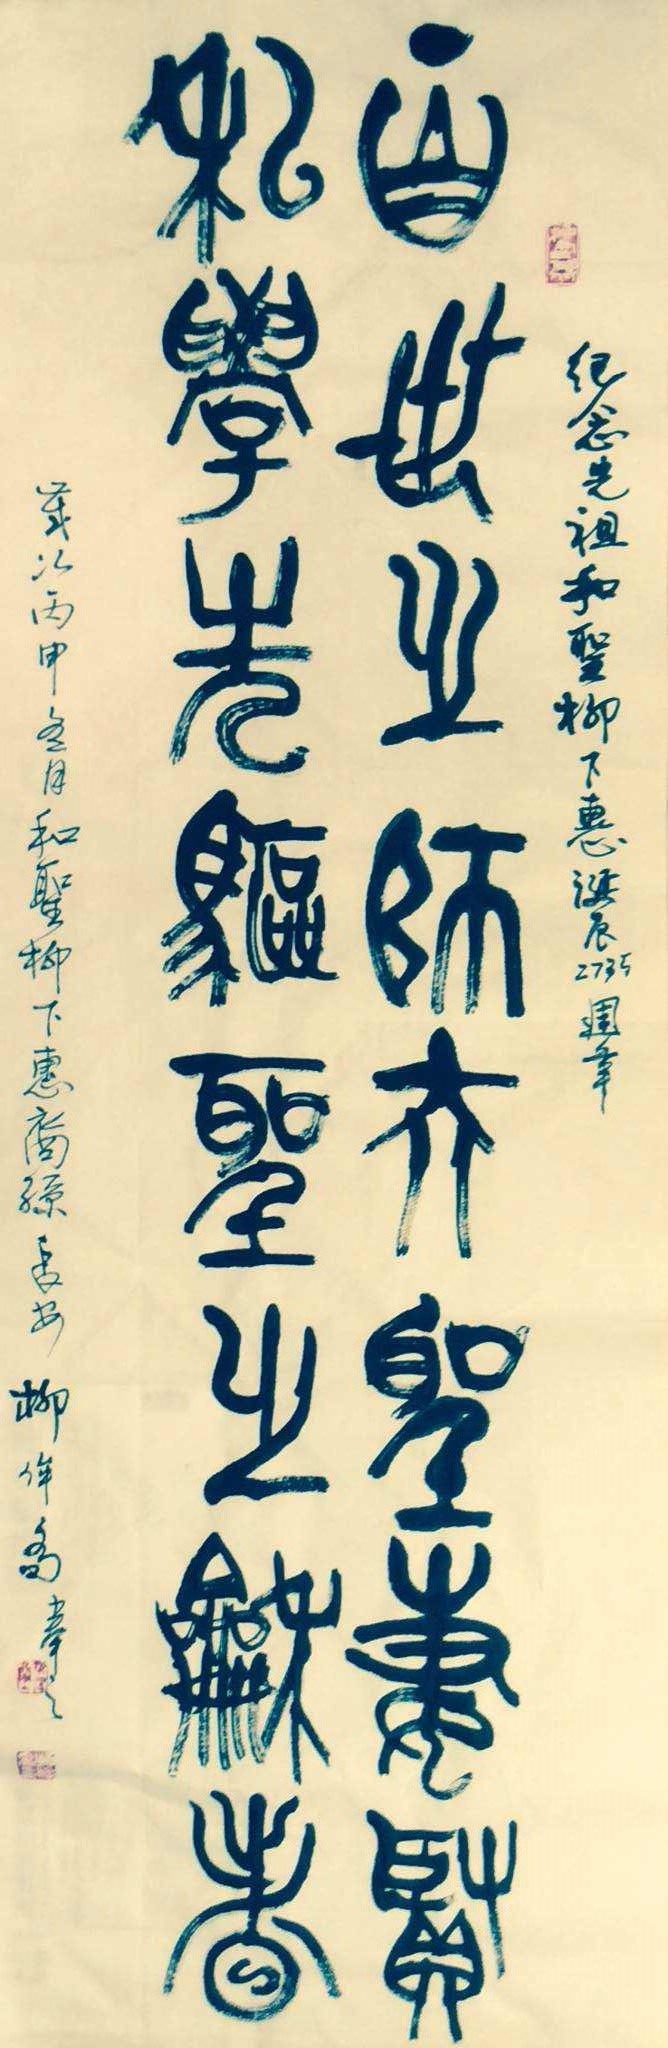 纪念先祖和聖柳下惠誕辰2735週年
百世之师亦聖惠賢
私學先驅聖之龢者
歲次丙申冬月和聖柳下惠裔孫長安柳